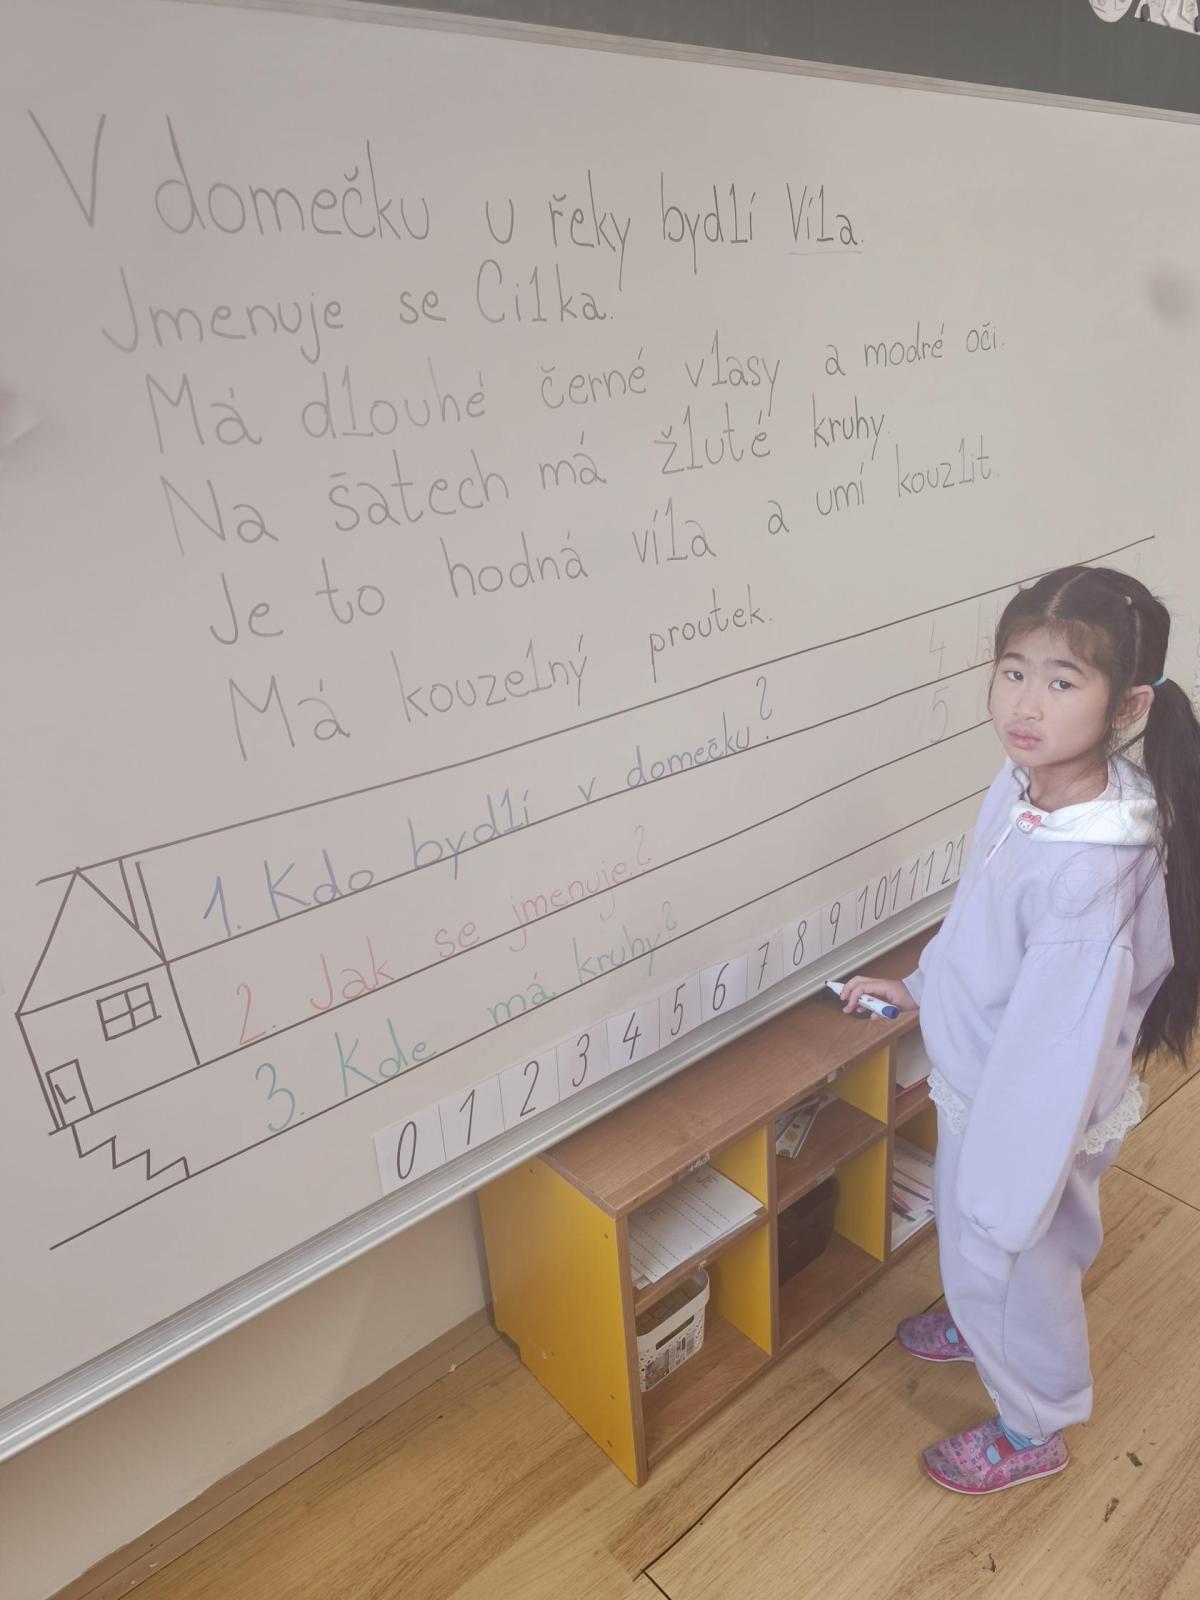 V domečku u řeky bydlí Víla.
Jmenuje se Cilka.
Má dlouhé černé vlasy a modré oči.
Na šatech má žluté kruhy.
Je to hodná víla a umí kouzlit.
Má kouzelný proutek.
1. Kdo bydlí v domečku?
2. Jak se jmenuje?
3. Kde má kruhy?
4
5
0 1 2 3 4 5 6 7 8 9 10 11 11 21